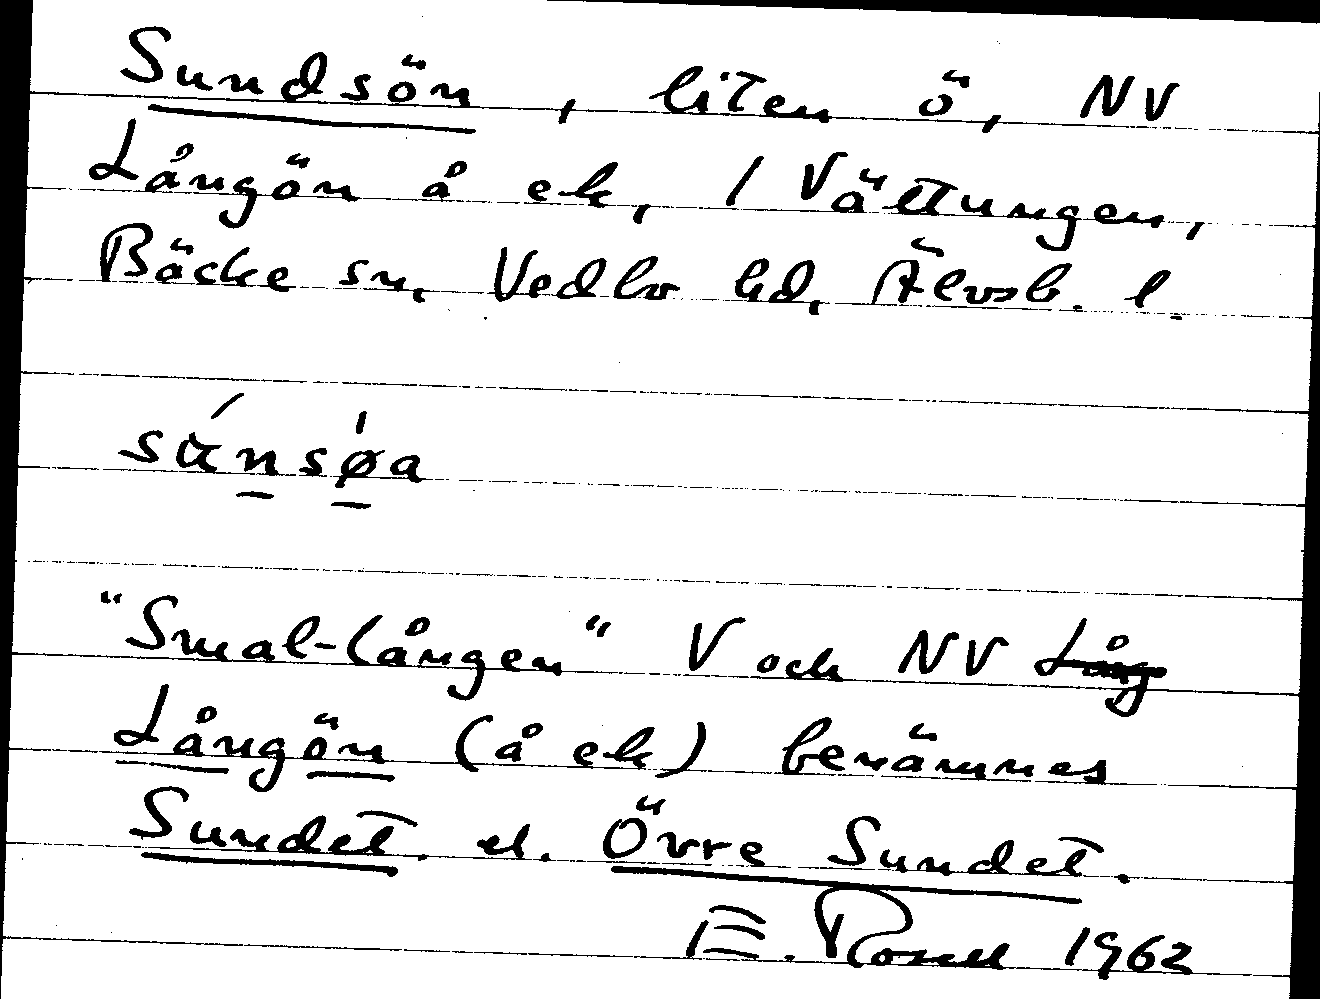 Sundsön, liten ö, NV
Långön å ek, i Vättungen,
Bäcke sn, Vedbo hd, Älvsb. l.
sá̱nsø̍a
"Smal-lången" V och NV Lång
Långön (å ek) benämnes
Sundet el. Övre Sundet.
E. Rosell 1962